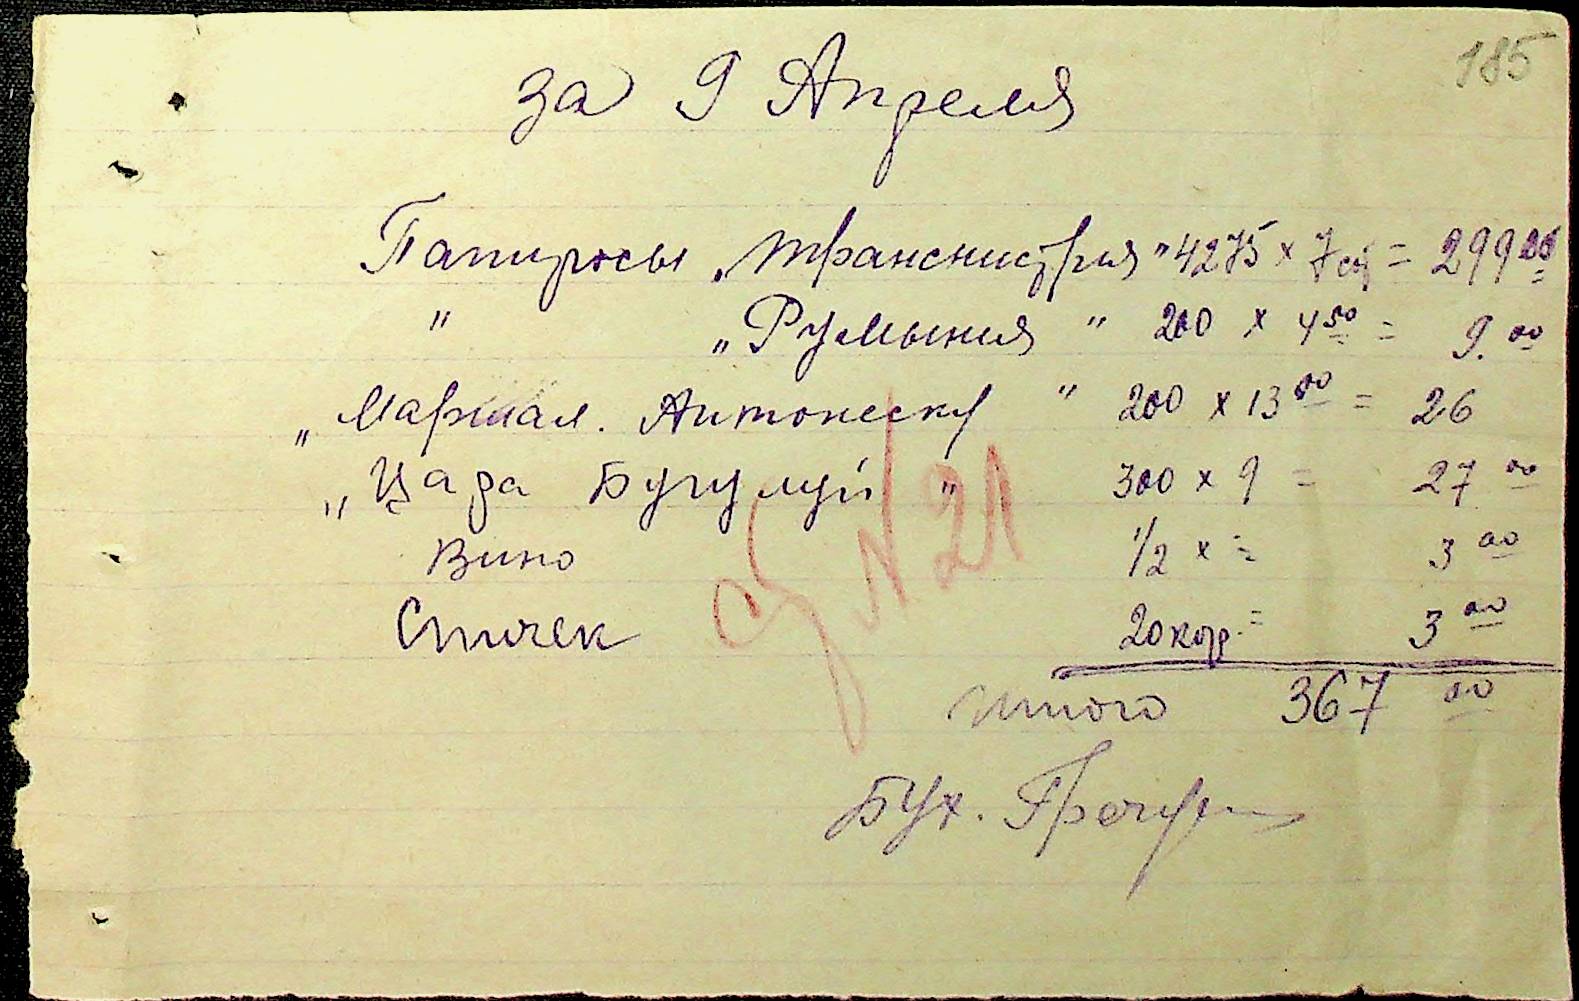 185
за 9 Апреля
Папиросы „Транснистрия" 4275 × 7 сот = 299 25
" „Румыния" 200 × 4 50 = 9. 00
„Маршал. Антонеску" 200 × 13 00 = 26
„Цара Бугулуй" 300 × 9 = 27 00
Вино 1/2 × = 3 00
Спичек 20 кор. = 3 00
Итого 367 00
N 21
Бух.